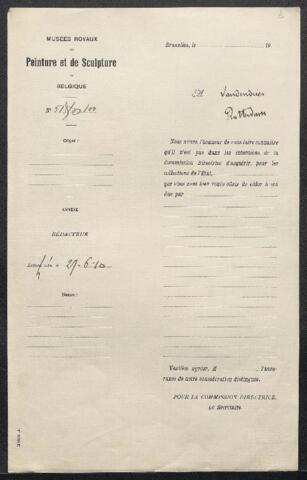 MUSÉES ROYAUX
DE
Peinture et de Sculpture
DE
BELGIQUE
N°
Objet:
ANNEXE
RÉDACTEUR
le 27-6-10
Bruxelles, le 19
M
Rotterdam
Nous avons l'honneur de vous faire connaître
qu'il n'est pas dans les intentions de la
Commission directrice d'acquérir, pour les
collections de l'État,
que vous avez bien voulu offrir de céder à ce
prix par
Veuillez agréer, M , l'assu-
rance de notre considération distinguée.
POUR LA COMMISSION DIRECTRICE,
Le Secrétaire.